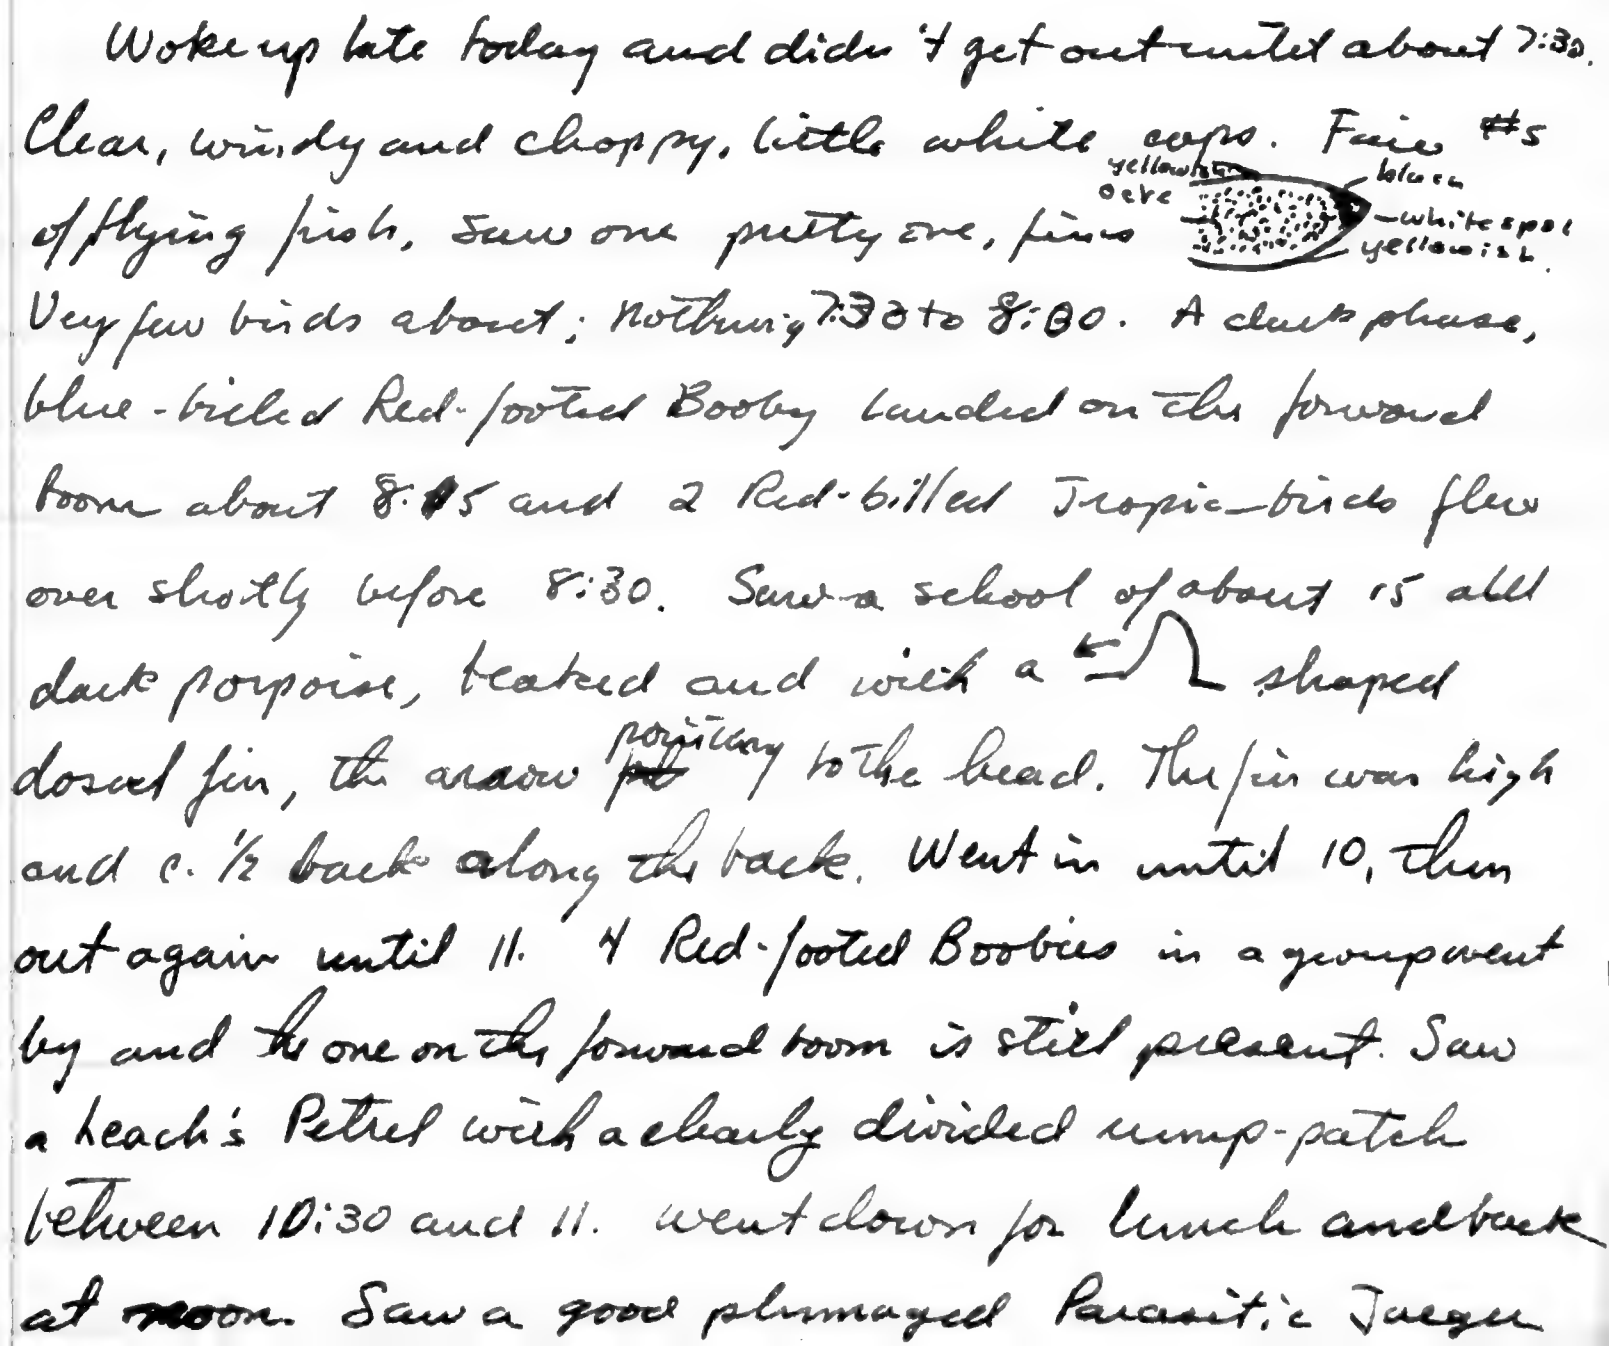 Woke up late today and didn't get out until about 7:30.
Clear, windy and choppy, little white caps. Fair #s
yellowish
ocre
black
white spot
yellowish.
of flying fish, saw one pretty one, fins
Very few birds about; nothing 7:30 to 8:00. A dark phase,
blue-billed Red-footed Booby landed on the forward
boom about 8:15 and 2 Red-billed Tropic-birds flew
over shortly before 8:30. Saw a school of about 15 all
dark porpoise, beaked and with a shaped
dorsal fin, the arrow pointing to the head. The fin was high
and c. 1/2 back along the back. Went in until 10, then
out again until 11. 4 Red-footed Boobies in a group went
by and the one on the forward boom is still present. Saw
a Leach's Petrel with a clearly divided rump-patch
between 10:30 and 11. Went down for lunch and back
at noon. Saw a good plumaged Parasitic Jaeger